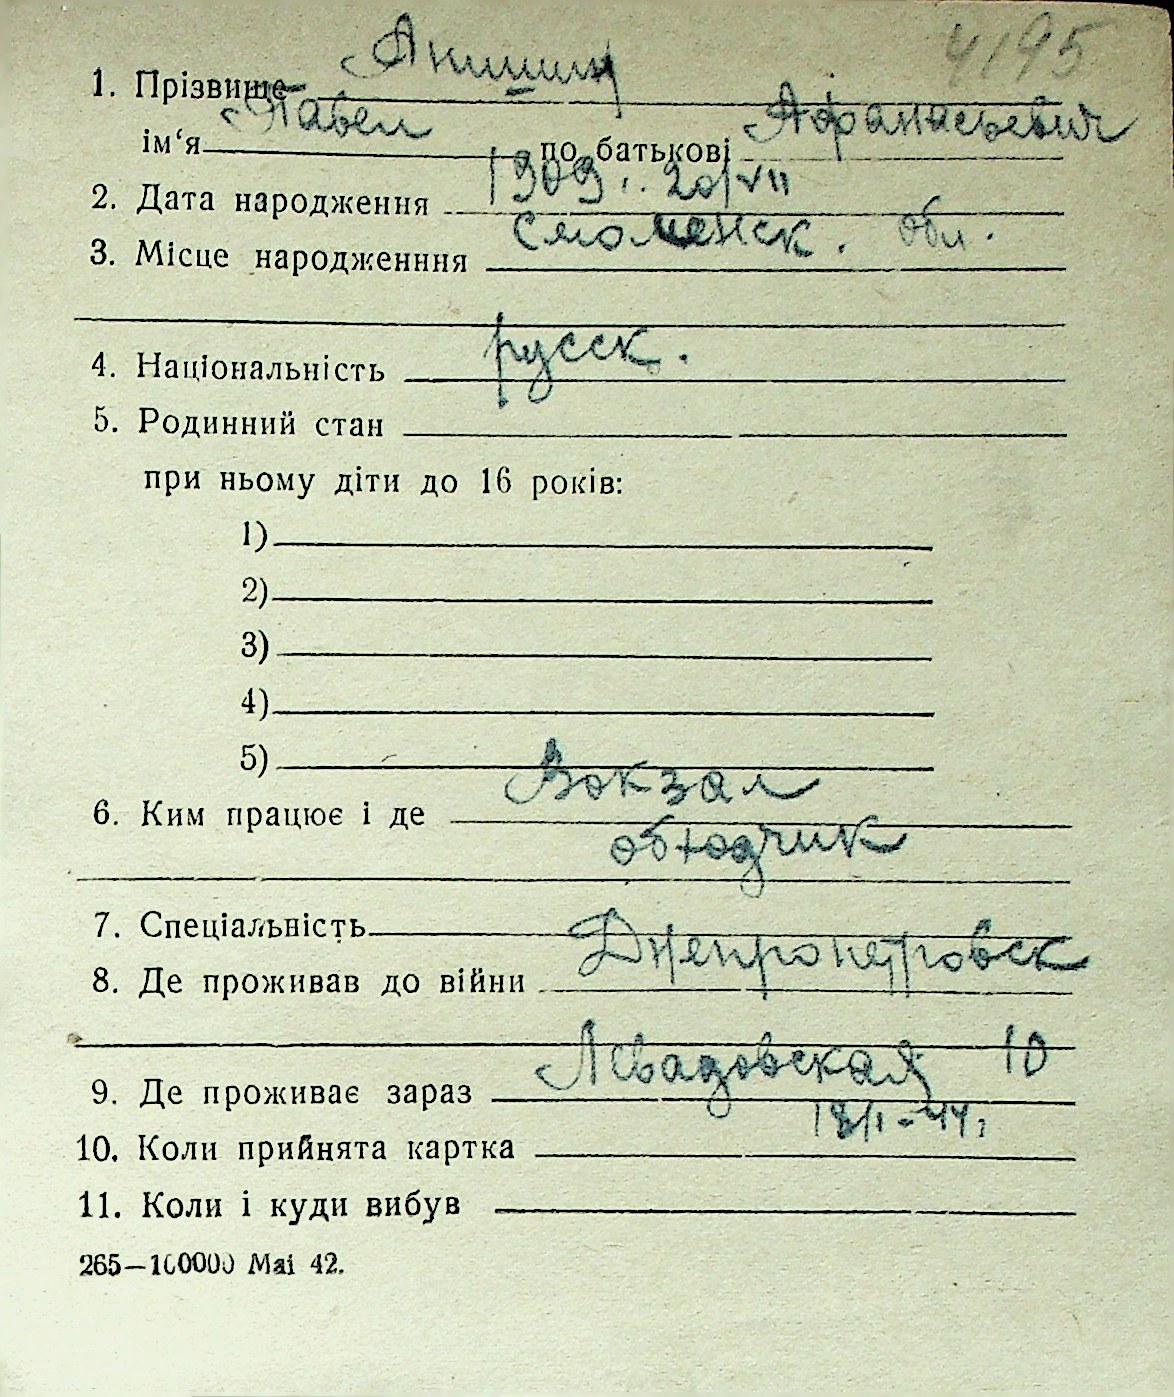 4195
1. Прізвище Анишин
ім‘я Павел по батькові Афанасьевич
2. Дата народження 1909 г. 20/VII
3. Місце народженння Смоленск. обл.
4. Національність русск.
5. Родинний стан
при ньому діти до 16 років:
1)
2)
3)
4)
5)
6. Ким працює і де Вокзал
обходчик
7. Спеціальність
8. Де проживав до війни Днепропетровск
9. Де проживає зараз Левадовская 10
10. Коли прийнята картка 18/I-44г
11. Коли і куди вибув
265—100000 Маі 42.